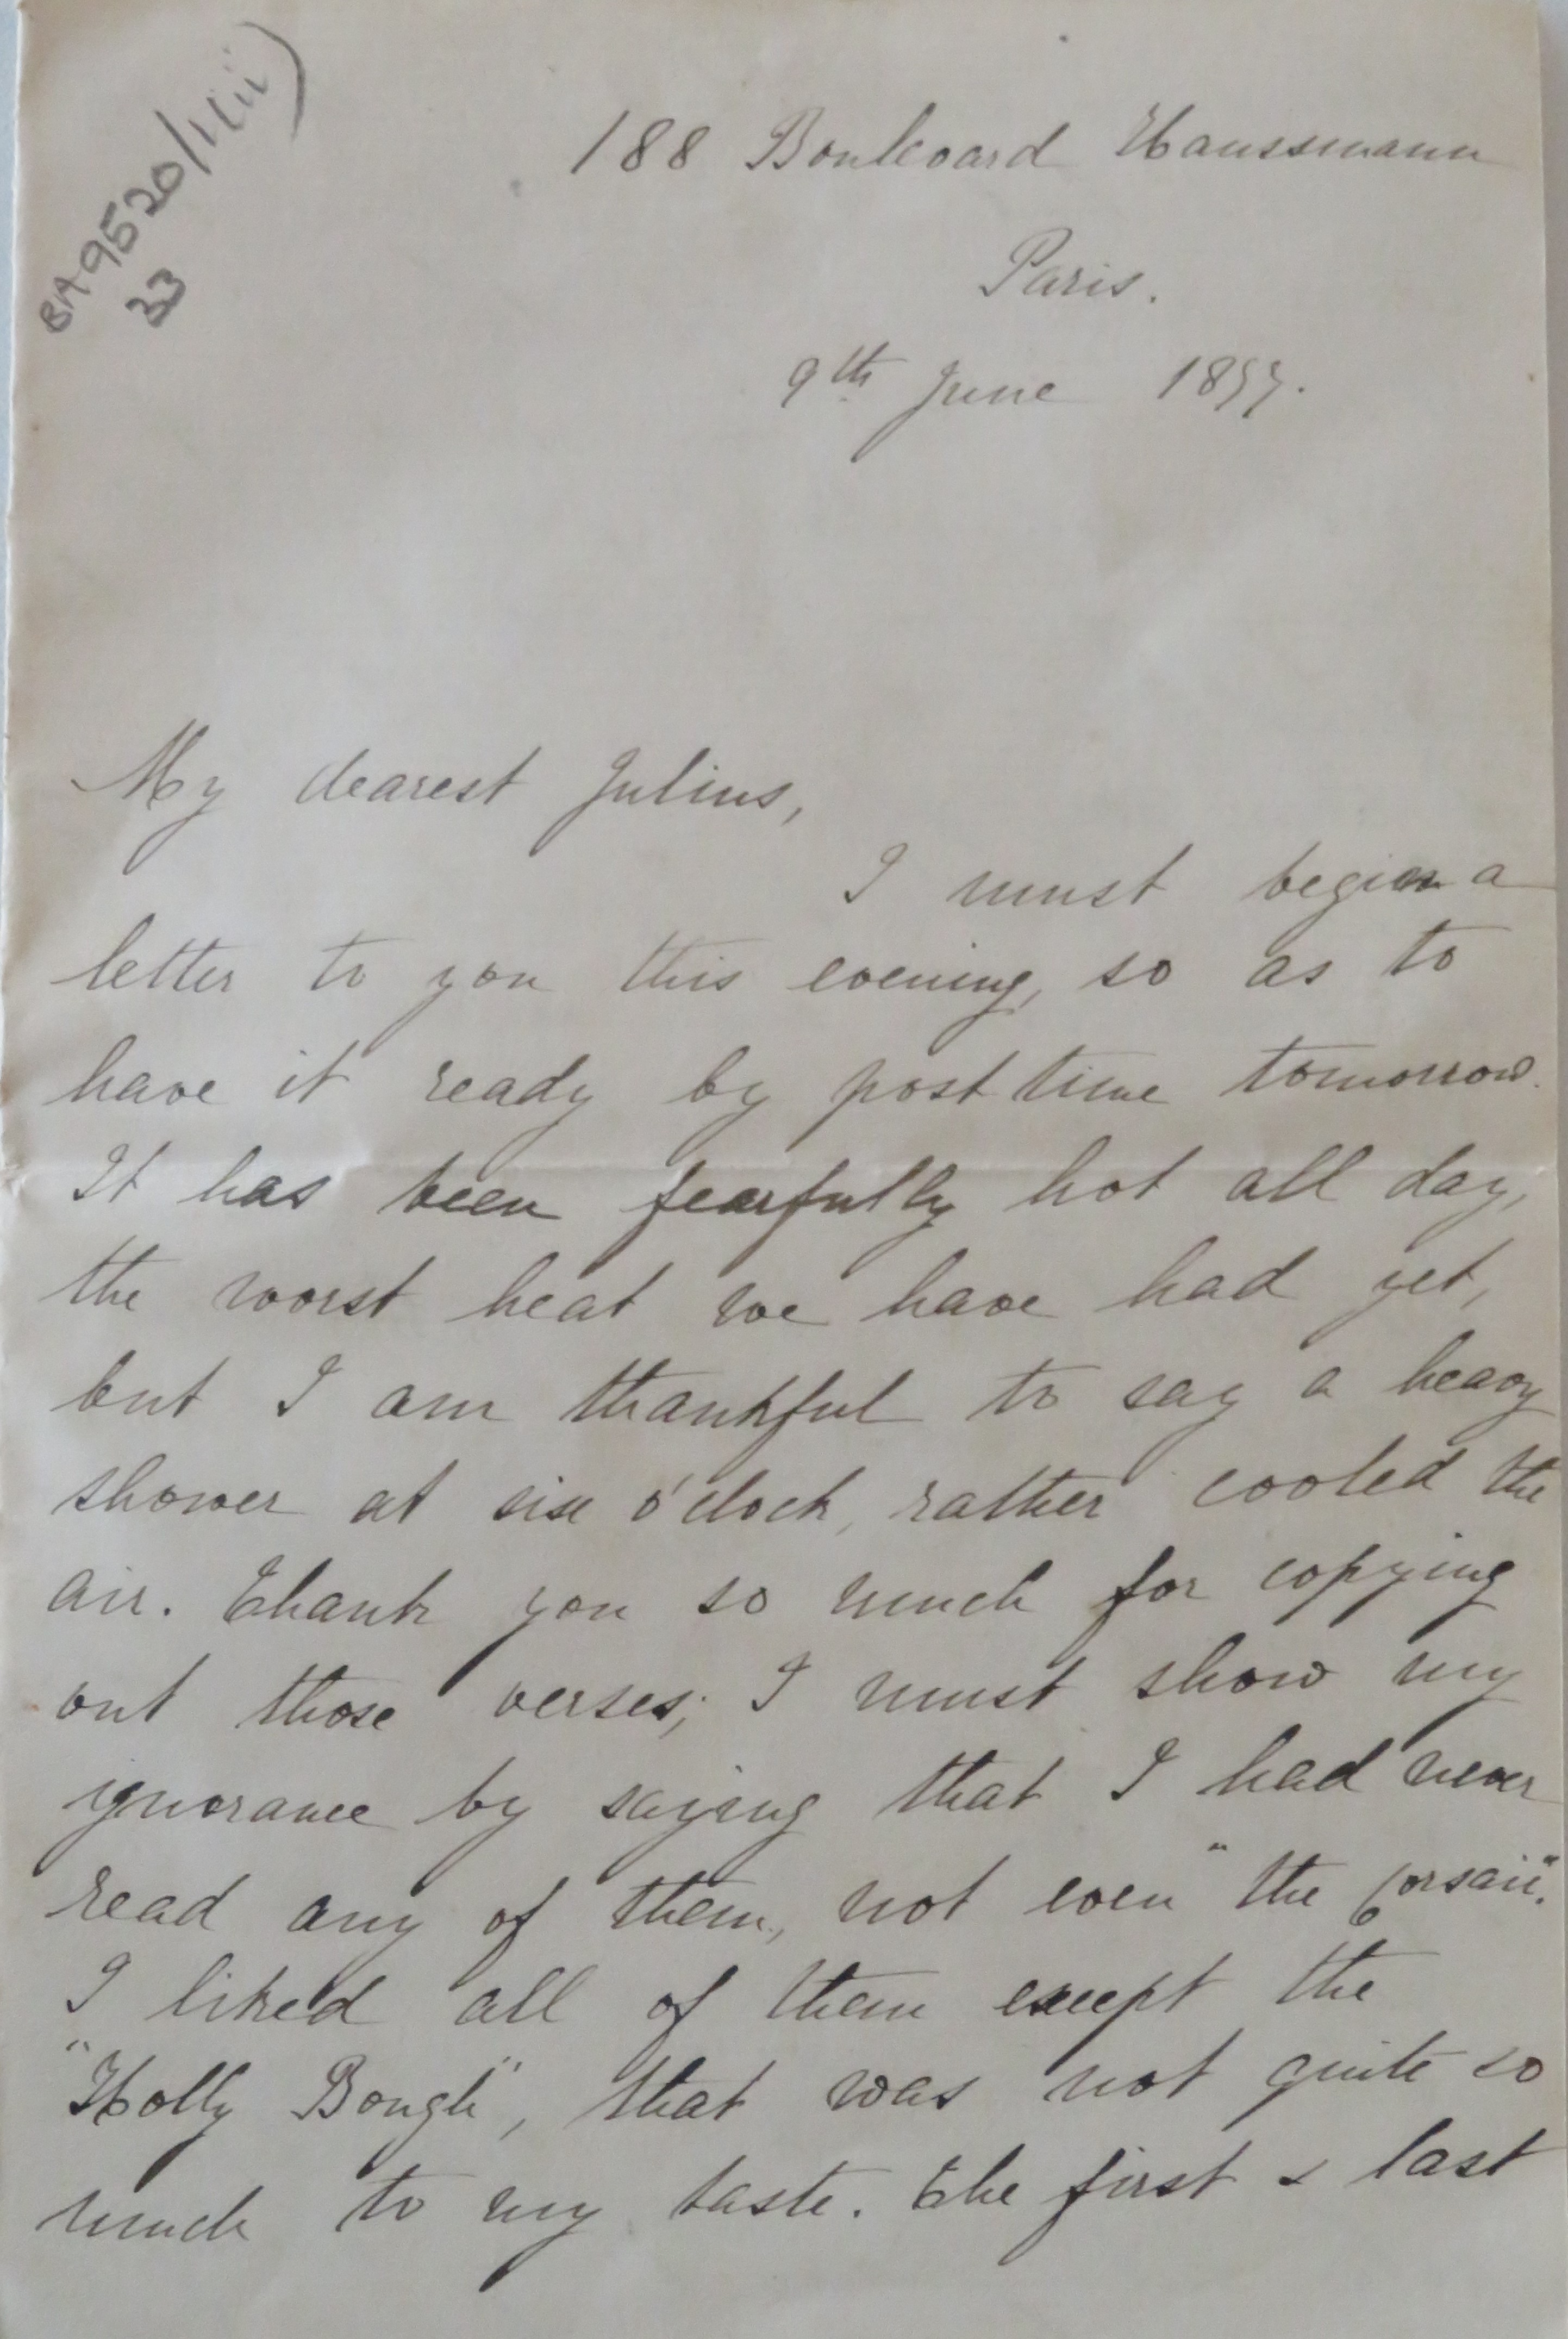 BA9520/1(ii)
33
188 Boulevard Haussmann
Paris.
9th June 1877.
My dearest Julius,
I must begin a
letter to you this evening, so as to
have it ready by post time tomorrow.
It has been fearfully hot all day,
the worst heat we have had yet,
but I am thankful to say a heavy
shower at six o'clock, rather cooled the
air. Thank you so much for copying
out those verses; I must show my
ignorance by saying that I had never
read any of them, not even "the Corsair".
I liked all of them except the
"Holly Bough", that was not quite so
much to my taste. The first & last